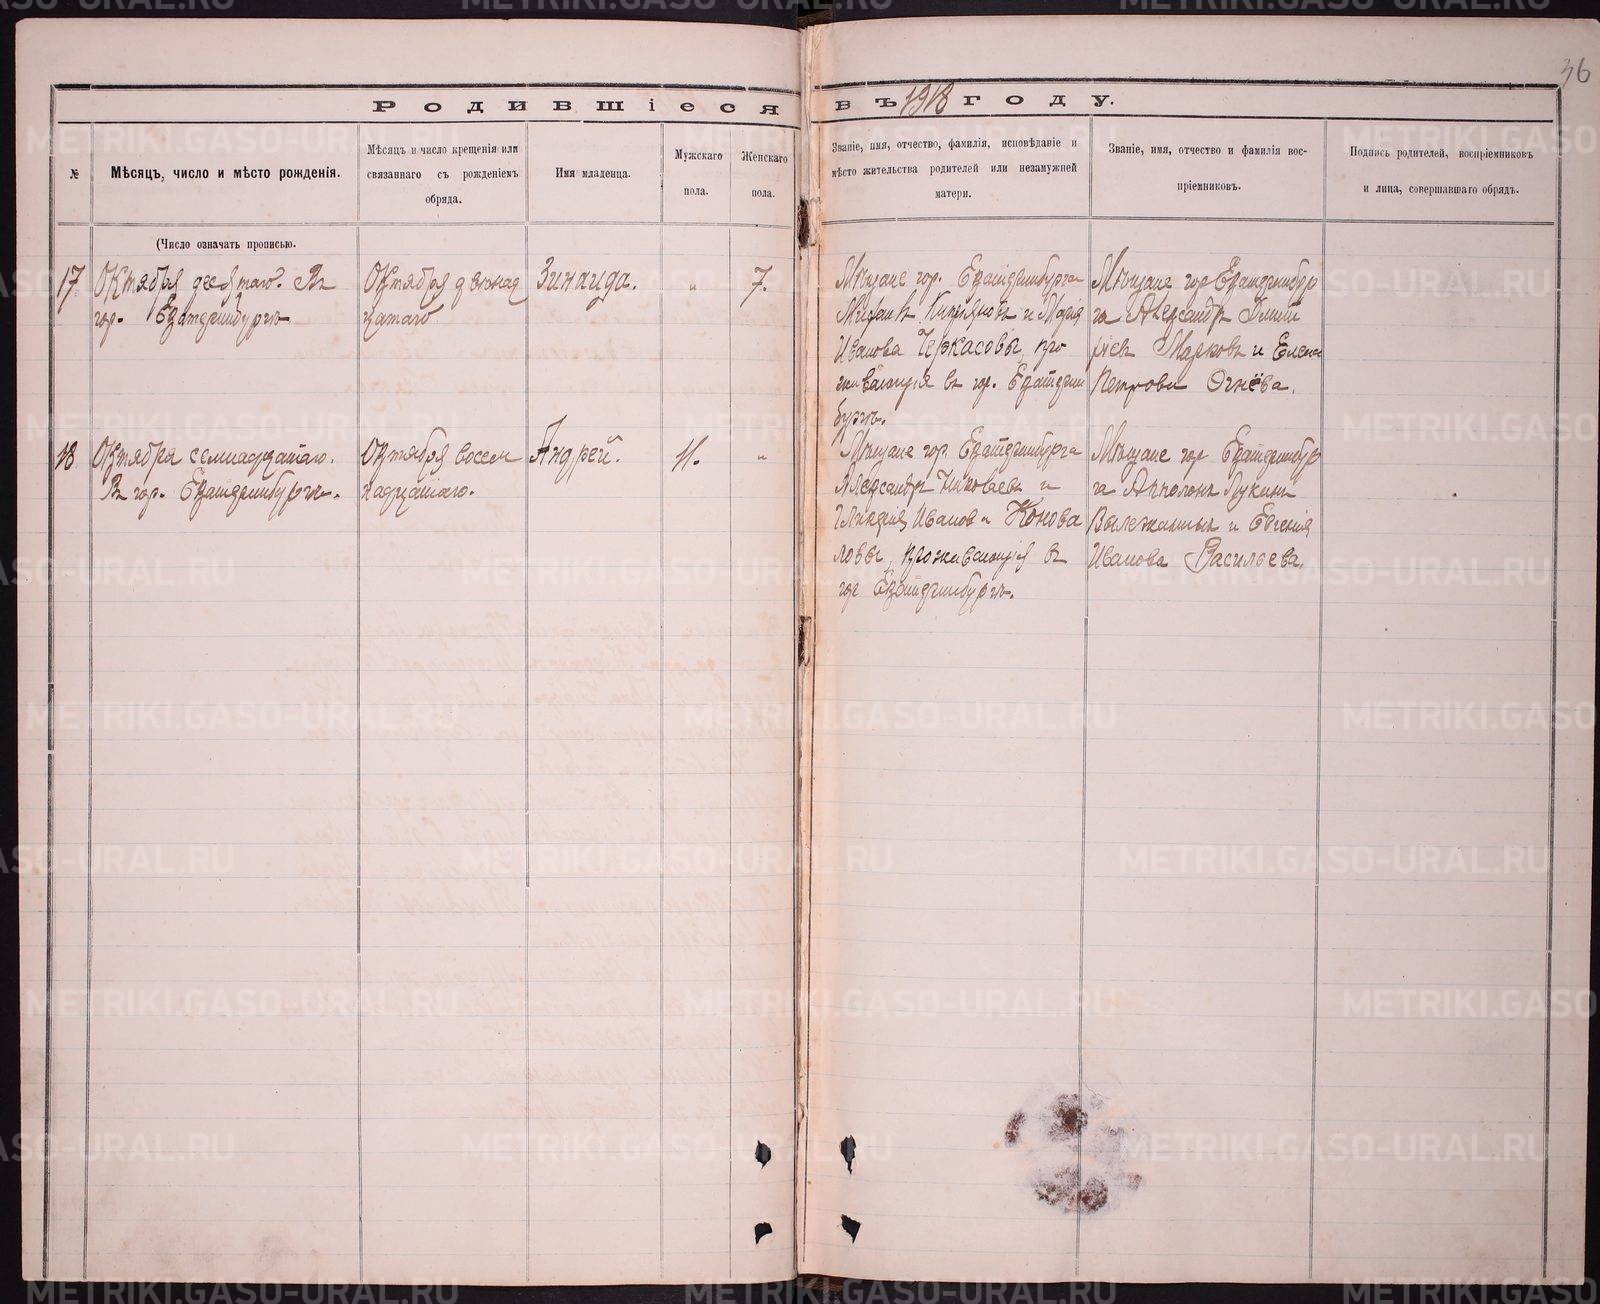 36
Родившіеся въ 1918 году.
№
Мѣсяцъ, число и мѣсто рожденія.
Мѣсяцъ и число крещенія или
связаннаго съ рожденіемъ
обряда.
Имя младенца.
Мужскаго
пола.
Женскаго
пола.
Званіе, имя, отчество, фамилія, исповѣданіе и
мѣсто жительства родителей или незамужней
матери.
Званіе, имя, отчество и фамилія вос-
пріемниковъ.
Подпись родителей, воспріемниковъ
и лица, совершавшаго обрядъ.
(Число означать прописью.
17
Октября десятаго. Въ
гор. Екатеринбургѣ
Октября двенад
цатаго
Зинаида.
"
7.
Мѣщане гор. Екатеринбурга
Киприяновъ и Марія
Иванова Черкасовы, про
живающія въ гор. Екатерин
бургѣ.
Мѣщане гор Екатеринбур
га Александръ Дмит
ріевъ Марковъ и Елена
Петрова Огнёва.
18
Октября семнадцатаго.
Въ гор. Екатеринбургѣ.
Октября восем
надцатаго.
Андрей.
11.
"
Мѣщане гор. Екатеринбурга
Александръ Николаевъ и
Гликерія Иванов Конова
ловы, проживающія въ
гор Екатеринбургѣ.
Мѣщане гор Екатеринбур
га Апполонъ Лукинъ
Вылежанинъ и Евгенія
Иванова Васильева.
METRIKI.GASO-URAL.RU